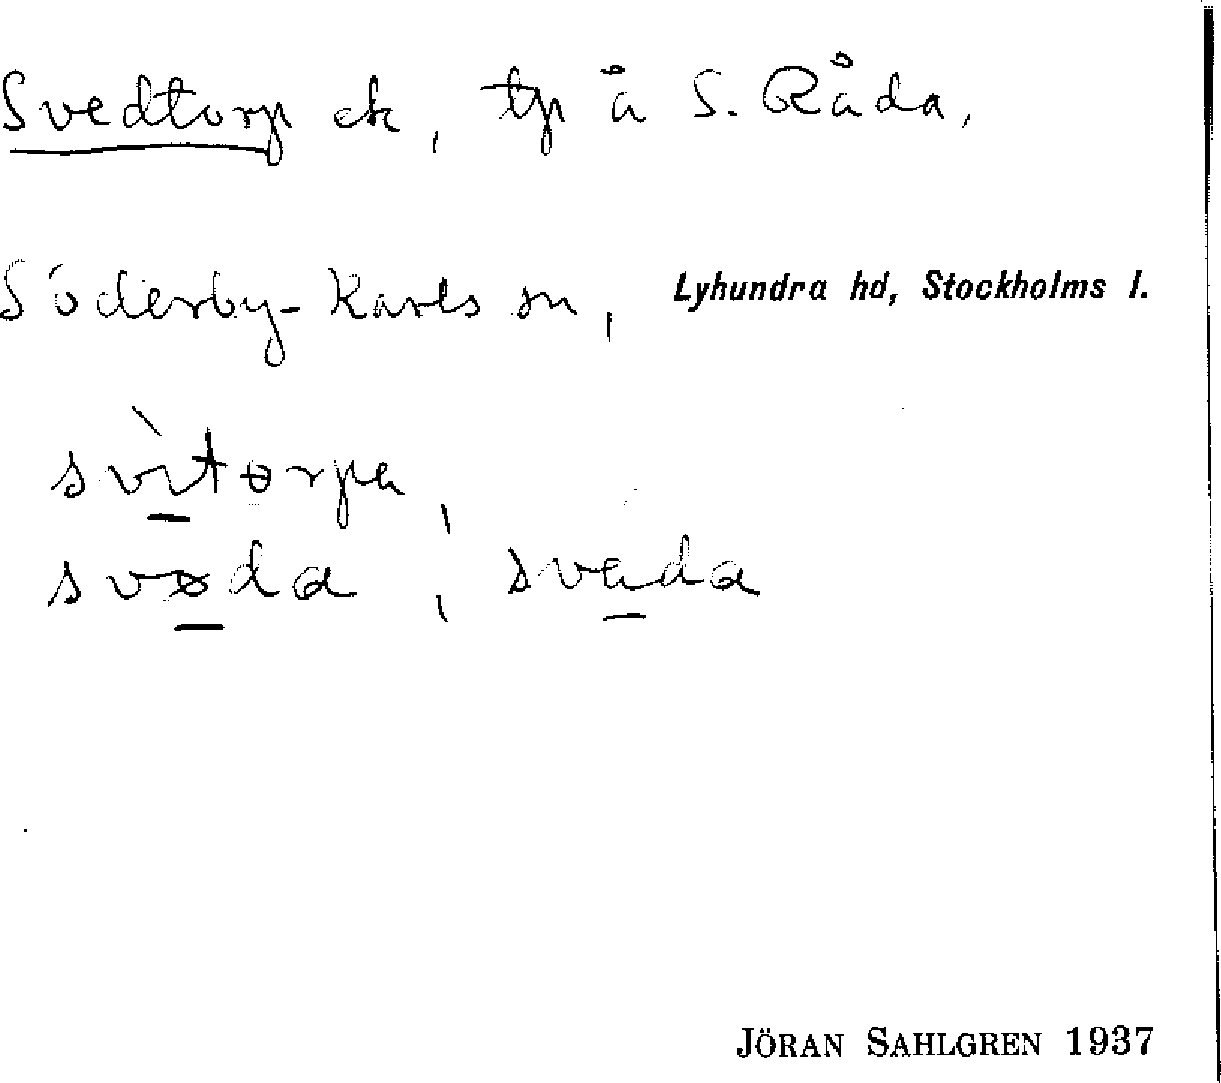 Svedtorp ek, tp å S. Råda,
Söderby-Karls sn, Lyhundra hd, Stockholms l.
svìtorpa,
svɵda, svada
JÖRAN SAHLGREN 1937